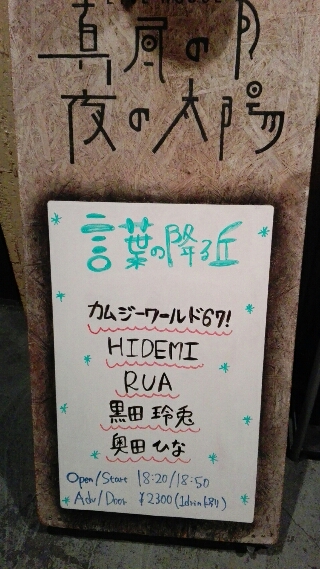 LIVE HOUSE
真昼の月
夜の太陽
言葉の降る丘
カムジーワールド67!
HIDEMI
RUA
黒田 玲兎
奥田 ひな
Open/Start 18:20/18:50
Adv/Door ¥2300(1drink別)